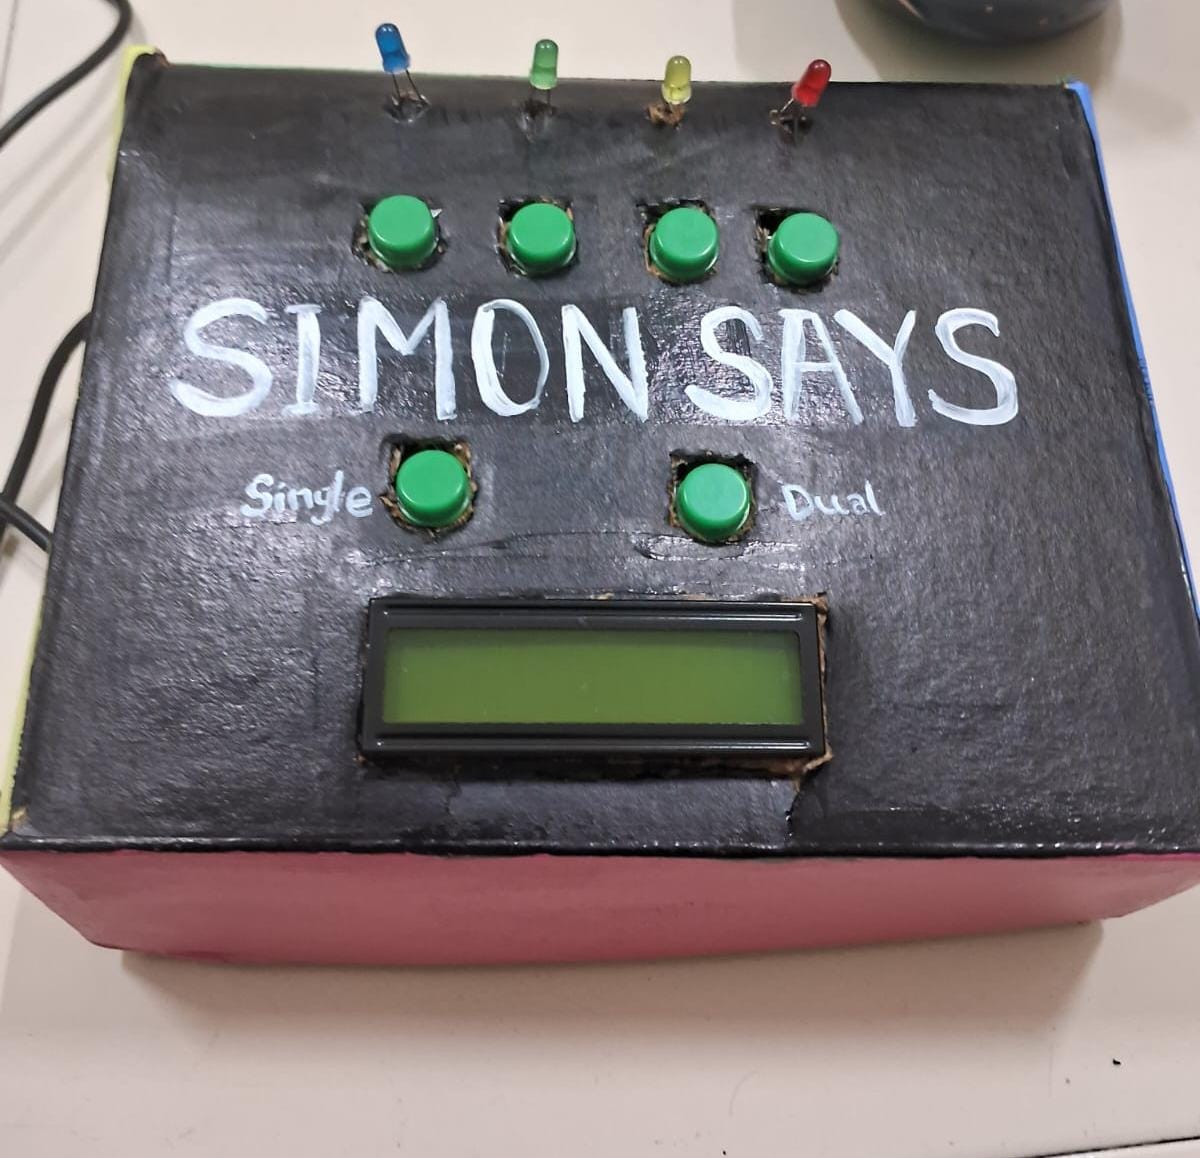 SIMON SAYS
Single Dual